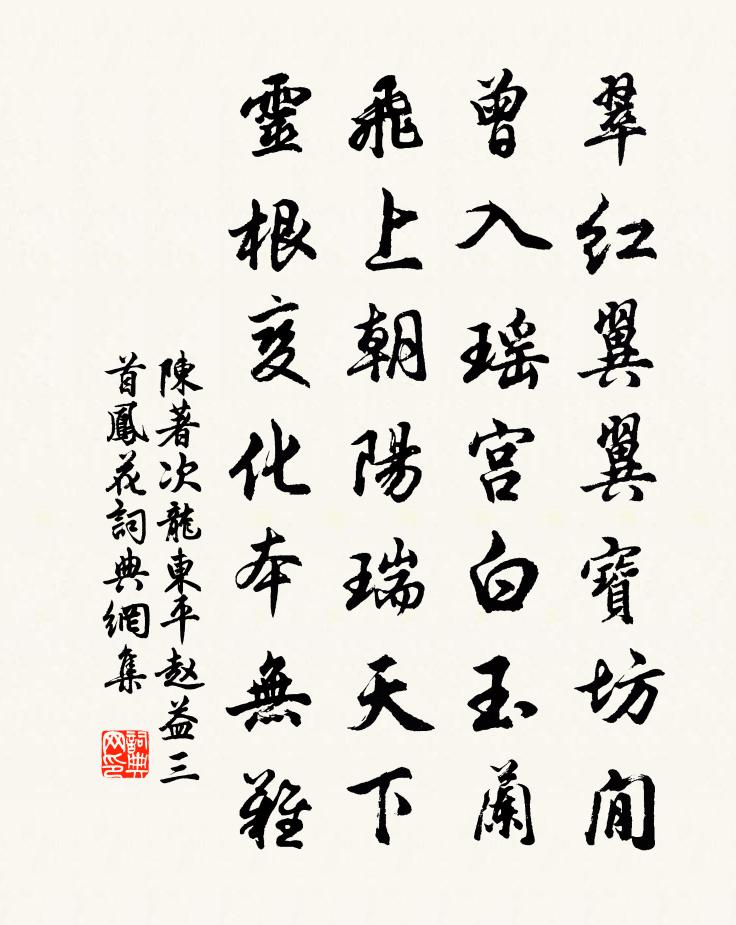 翠紅翼翼寶坊間
曾入瑶宫白玉蘭
飛上朝陽瑞天下
靈根变化本無難
陳著次龍東平赵益三
首鳳花詞典網集
詞典网印